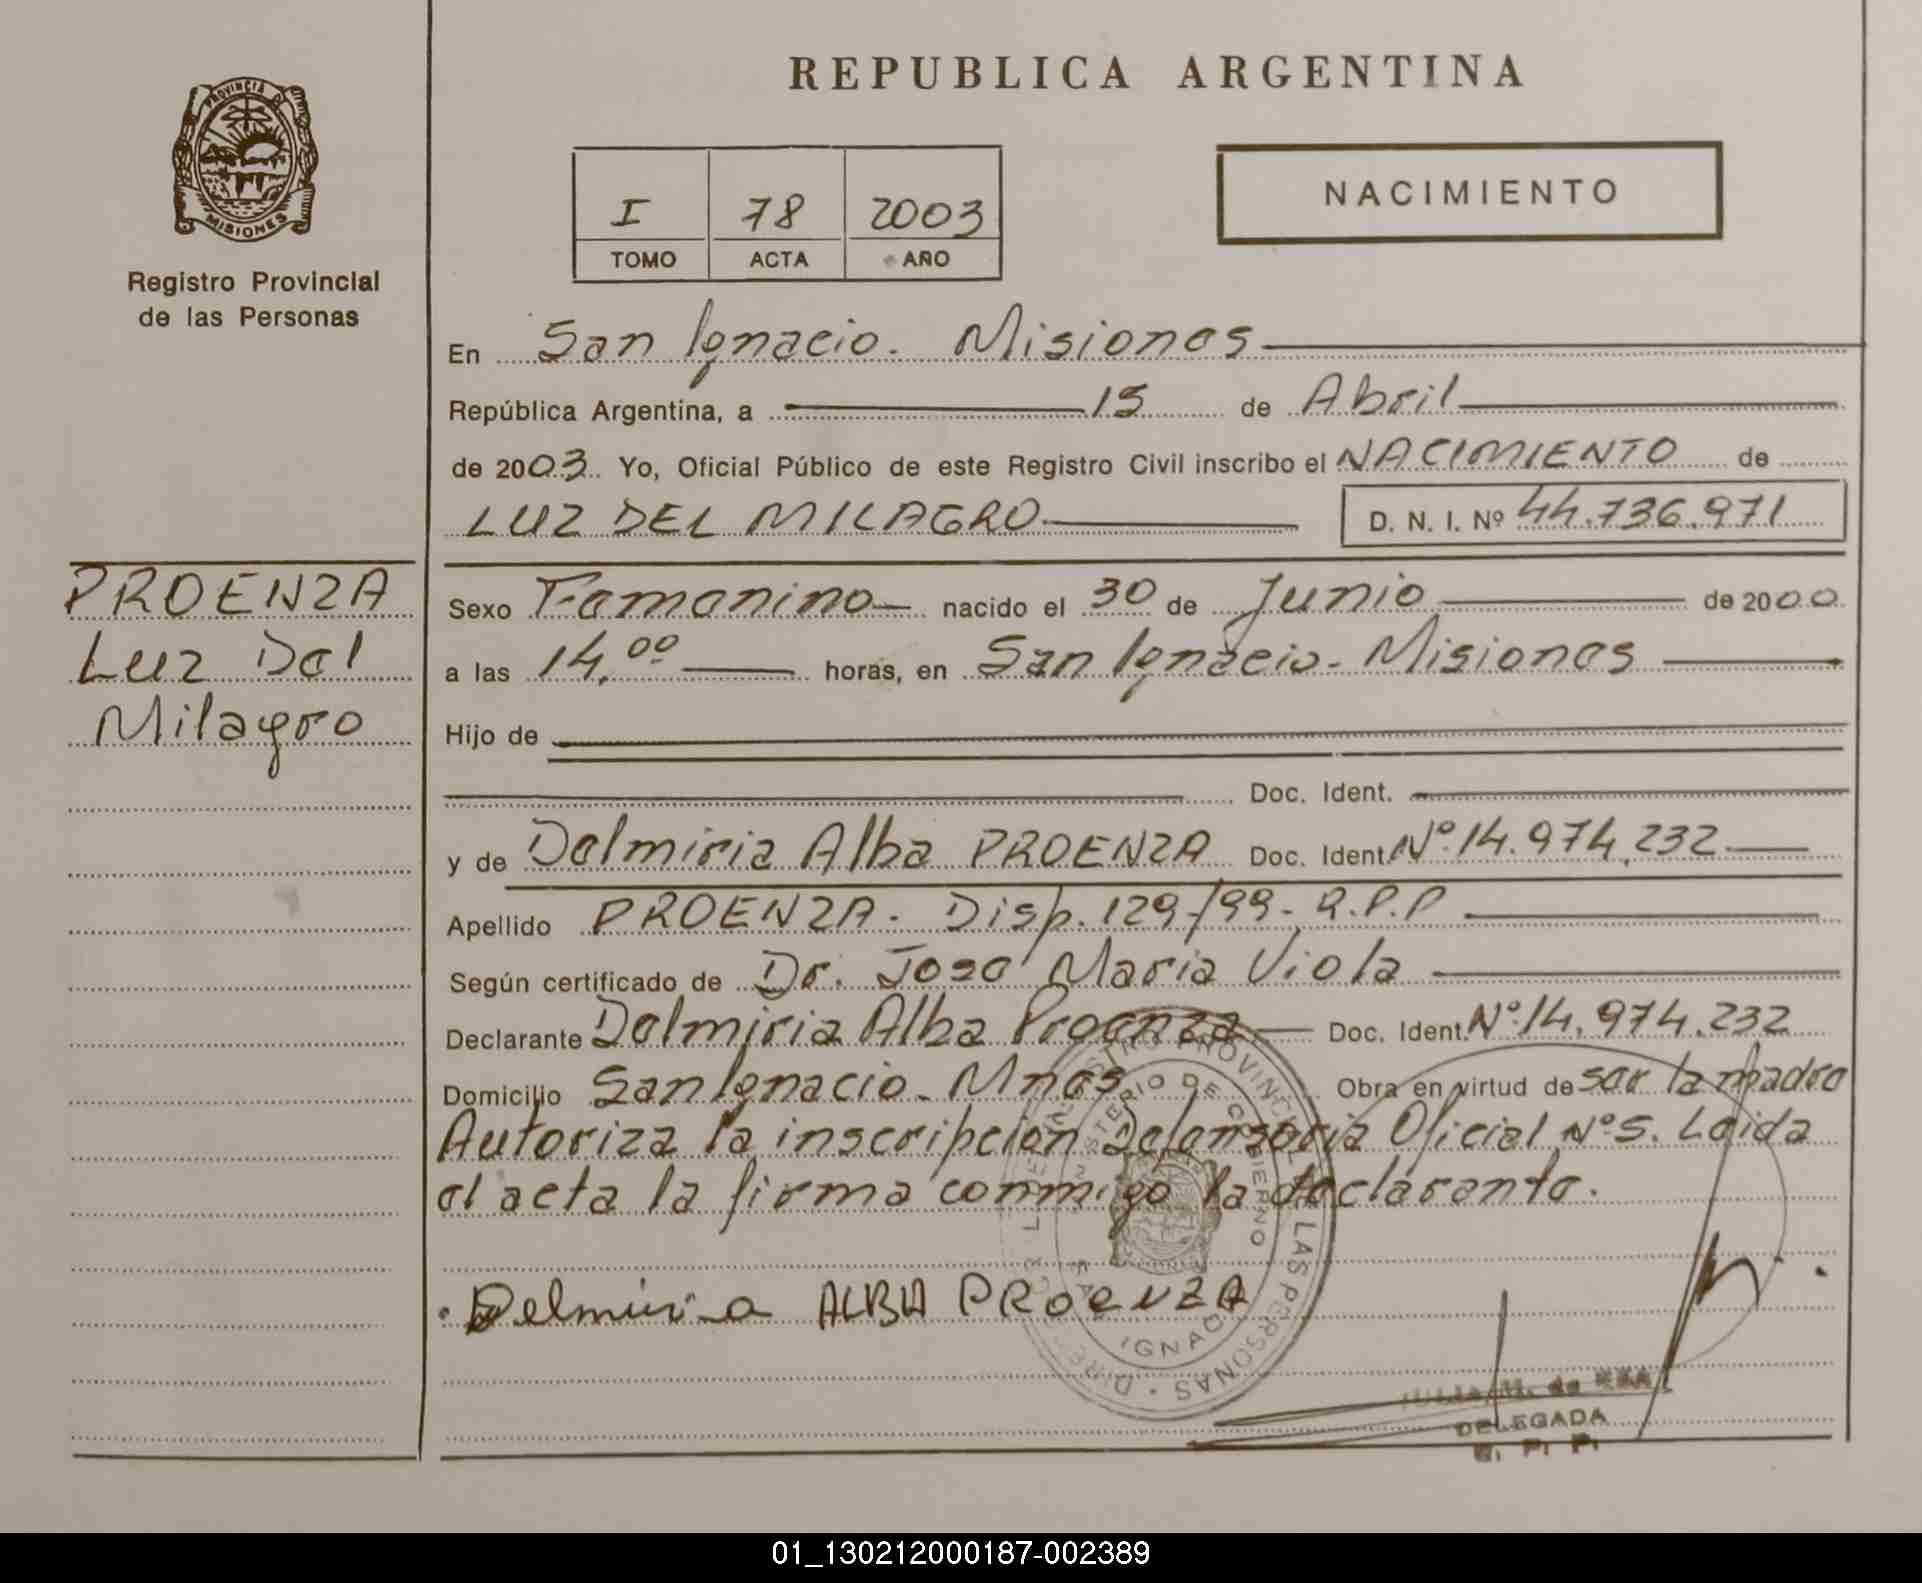 REPUBLICA ARGENTINA
PROVINCIA DE
MISIONES
Registro Provincial
de las Personas
I 78 2003
TOMO ACTA AÑO
NACIMIENTO
En San Ignacio. Misiones
República Argentina, a 15 de Abril
de 2003 Yo, Oficial Público de este Registro Civil inscribo el NACIMIENTO de
LUZ DEL MILAGRO D. N. I. Nº 44.736.971
PROENZA
Luz Del
Milagro
Sexo Femenino nacido el 30 de Junio de 2000
a las 14,00 horas, en San Ignacio. Misiones
Hijo de
Doc. Ident.
y de Delmiria Alba PROENZA Doc. Ident. Nº 14.974.232
Apellido PROENZA. Disp. 129/99. R.P.P
Según certificado de Dr. José Maria Viola
Declarante Delmiria Alba Proenza Doc. Ident. Nº 14.974.232
Domicilio San Ignacio. Mnes Obra en virtud de ser la madre
Autoriza la inscripción Defensoria Oficial Nº 5. Leida
el acta la firma conmigo la declarante.
Delmiria ALBA PROENZA
DELEGADA
R. P. P.
01_130212000187-002389